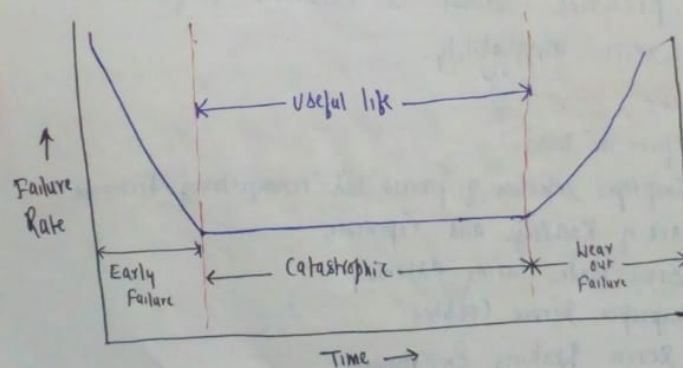 Useful life
↑
Failure
Rate
Early
Failure
Catastrophic
Wear
out
Failure
Time →